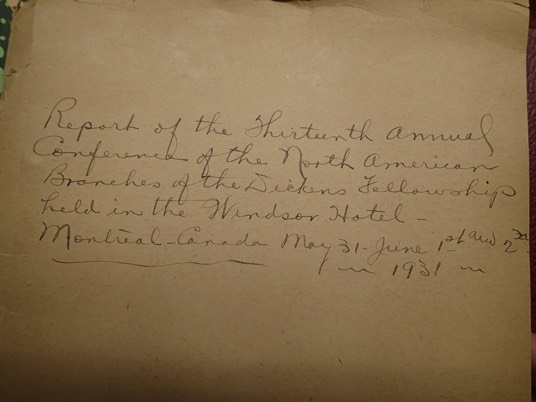 Report of the Thirteenth Annual
Conference of the North American
Branches of the Dickens Fellowship
held in the Windsor Hotel -
Montreal - Canada May 31 - June 1st and 2nd
~ 1931 ~